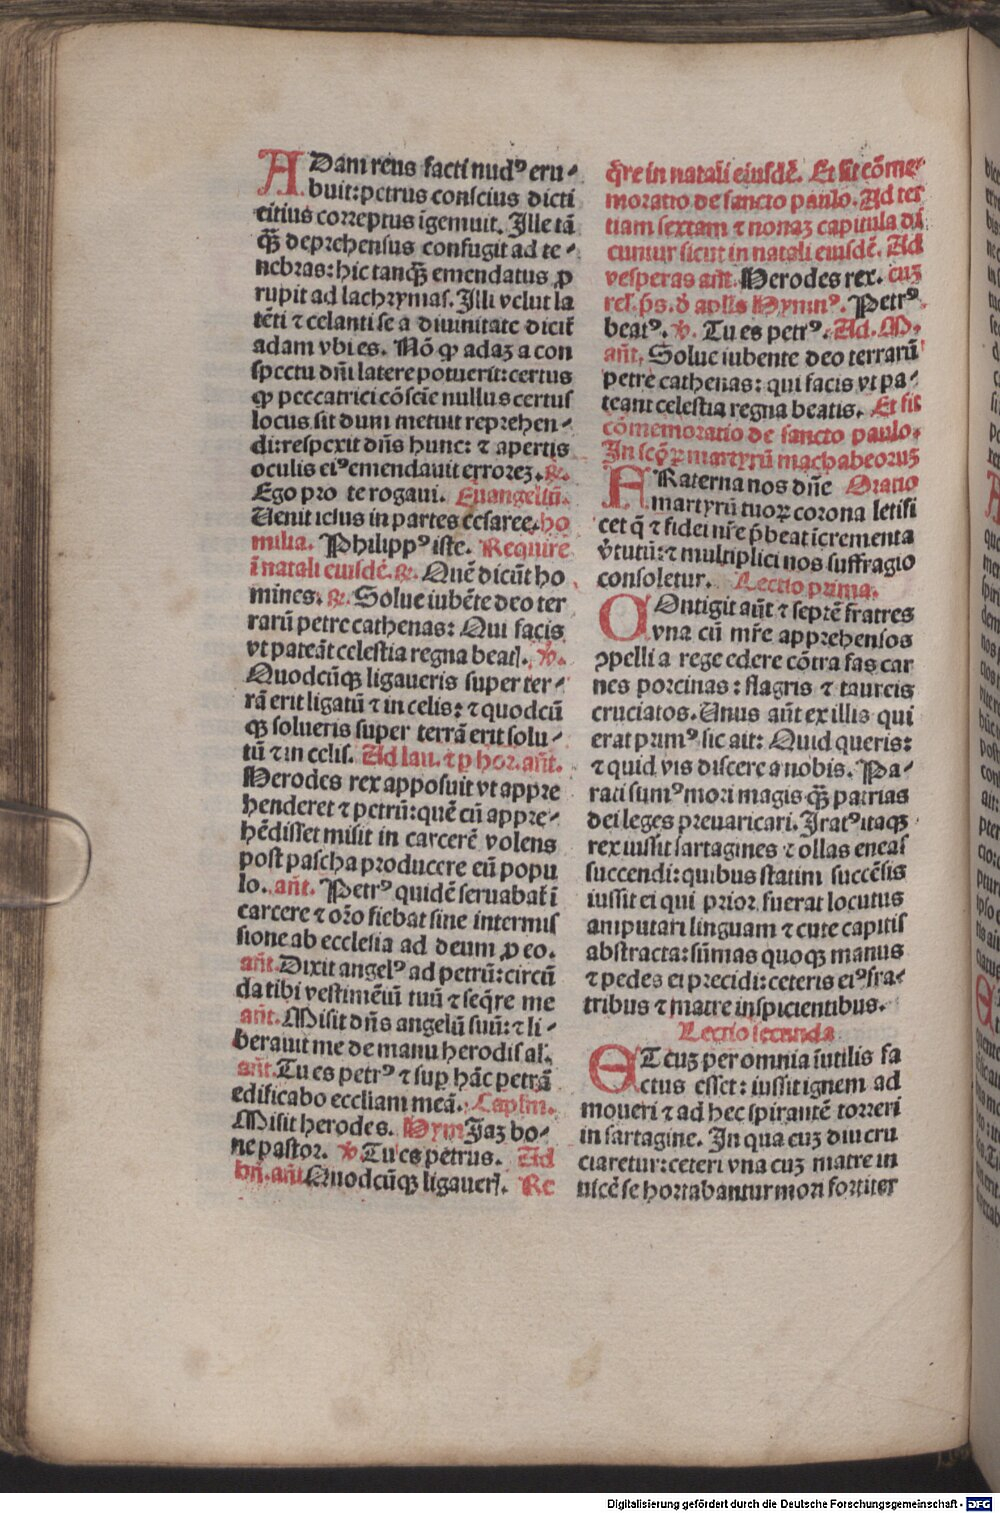 ADam reus facti nudꝰ eru⸗
buit: petrus conscius dicti
citius correptus īgemuit. Ille tā
q̄ꝫ deprehensus confugit ad te⸗
nebras: hic tanq̄ꝫ emendatus ꝓ
rupit ad lachrymas. Illi velut la
tēti ⁊ celanti se a diuinitate dicit̄
adam vbi es. Nō ꝙ adaꝫ a con
spectu dn̄i latere potuerit: certus
ꝙ peccatrici cōsciē nullus certus
locus sit dum metuit reprehen⸗
di: respexit dn̄s hunc: ⁊ apertis
oculis eiꝰ emendauit erroreꝫ. ℞.
Ego pro te rogaui. Euangeliū.
Uenit iesus in partes cesaree. ho
milia. Philippꝰ iste. Require
ī natali eiusdē. ℞. Quē dicūt ho
mines. ℞. Solue iubēte deo ter
rarū petre cathenas: Qui facis
vt pateāt celestia regna beatꝭ. ℣.
Quodcūqꝫ ligaueris super ter⸗
rā erit ligatū ⁊ in celis: ⁊ quodcū
qꝫ solueris super terrā erit solu⸗
tū ⁊ in celis. Ad lau. ⁊ ꝑ hor. an̄t.
Herodes rex apposuit vt appre
henderet ⁊ petrū: quē cū appre⸗
hēdisset misit in carcerē volens
post pascha producere eū popu
lo. an̄t. Petrꝰ quidē seruabat̄ ī
carcere ⁊ or̄o fiebat sine intermis
sione ab ecclesia ad deum ꝓ eo.
an̄t. Dixit angelꝰ ad petrū: circū
da tibi vestimētū tuū ⁊ seq̄re me
an̄t. Misit dn̄s angelū suū: ⁊ li⸗
berauit me de manu herodis al'.
an̄t. Tu es petrꝰ ⁊ sup̄ hāc petrā
edificabo eccliam meā. Caplm̄.
Misit herodes. Hym̄ Iaꝫ bo⸗
ne pastor. ℣. Tu es petrus. Ad
bn̄. an̄t. Quodcūqꝫ ligauerꝭ. Re
q̄re in natali eiusdē. Et sit cōme⸗
moratio de sancto paulo. Ad ter
tiam sextam ⁊ nonaꝫ capitula di
cuntur sicut in natali eiusdē. Ad
vesperas an̄t. Herodes rex. cuꝫ
rel'. p̄s. d̄ apl̄is Hymnꝰ. Petrꝰ
beatꝰ. ℣. Tu es petrꝰ. Ad. M.
an̄t. Solue iubente deo terrarū
petre cathenas: qui facis vt pa⸗
teant celestia regna beatis. Et fit
cōmemoratio de sancto paulo.
In sc̄oꝝ martyrū machabeoruꝫ
FRaterna nos dn̄e Oratio
martyrū tuoꝝ corona letifi
cet q̄ ⁊ fidei nr̄e p̄beat īcrementa
v̄tutū: ⁊ multiplici nos suffragio
consoletur. Lectio prima.
COntigit aūt ⁊ septē fratres
vna cū mr̄e apprehensos
ꝯpelli a rege edere cōtra fas car
nes porcinas: flagris ⁊ taureis
cruciatos. Unus aūt ex illis qui
erat primꝰ sic ait: Quid queris:
⁊ quid vis discere a nobis. Pa⸗
rati sumꝰ mori magis q̄ꝫ patrias
dei leges preuaricari. Iratꝰ itaqꝫ
rex iussit sartagines ⁊ ollas eneas
succendi: quibus statim succēsis
iussit ei qui prior fuerat locutus
amputari linguam ⁊ cute capitis
abstracta: sūmas quoqꝫ manus
⁊ pedes ei precidi: ceteris eiꝰ fra⸗
tribus ⁊ matre inspicientibus.
Lectio secunda
ET cuꝫ per omnia īutilis fa
ctus esset: iussit ignem ad
moueri ⁊ ad hec spirantē torreri
in sartagine. In qua cuꝫ diu cru
ciaretur: ceteri vna cuꝫ matre in
uicē se hortabantur mori fortiter
Digitalisierung gefördert durch die Deutsche Forschungsgemeinschaft - DFG